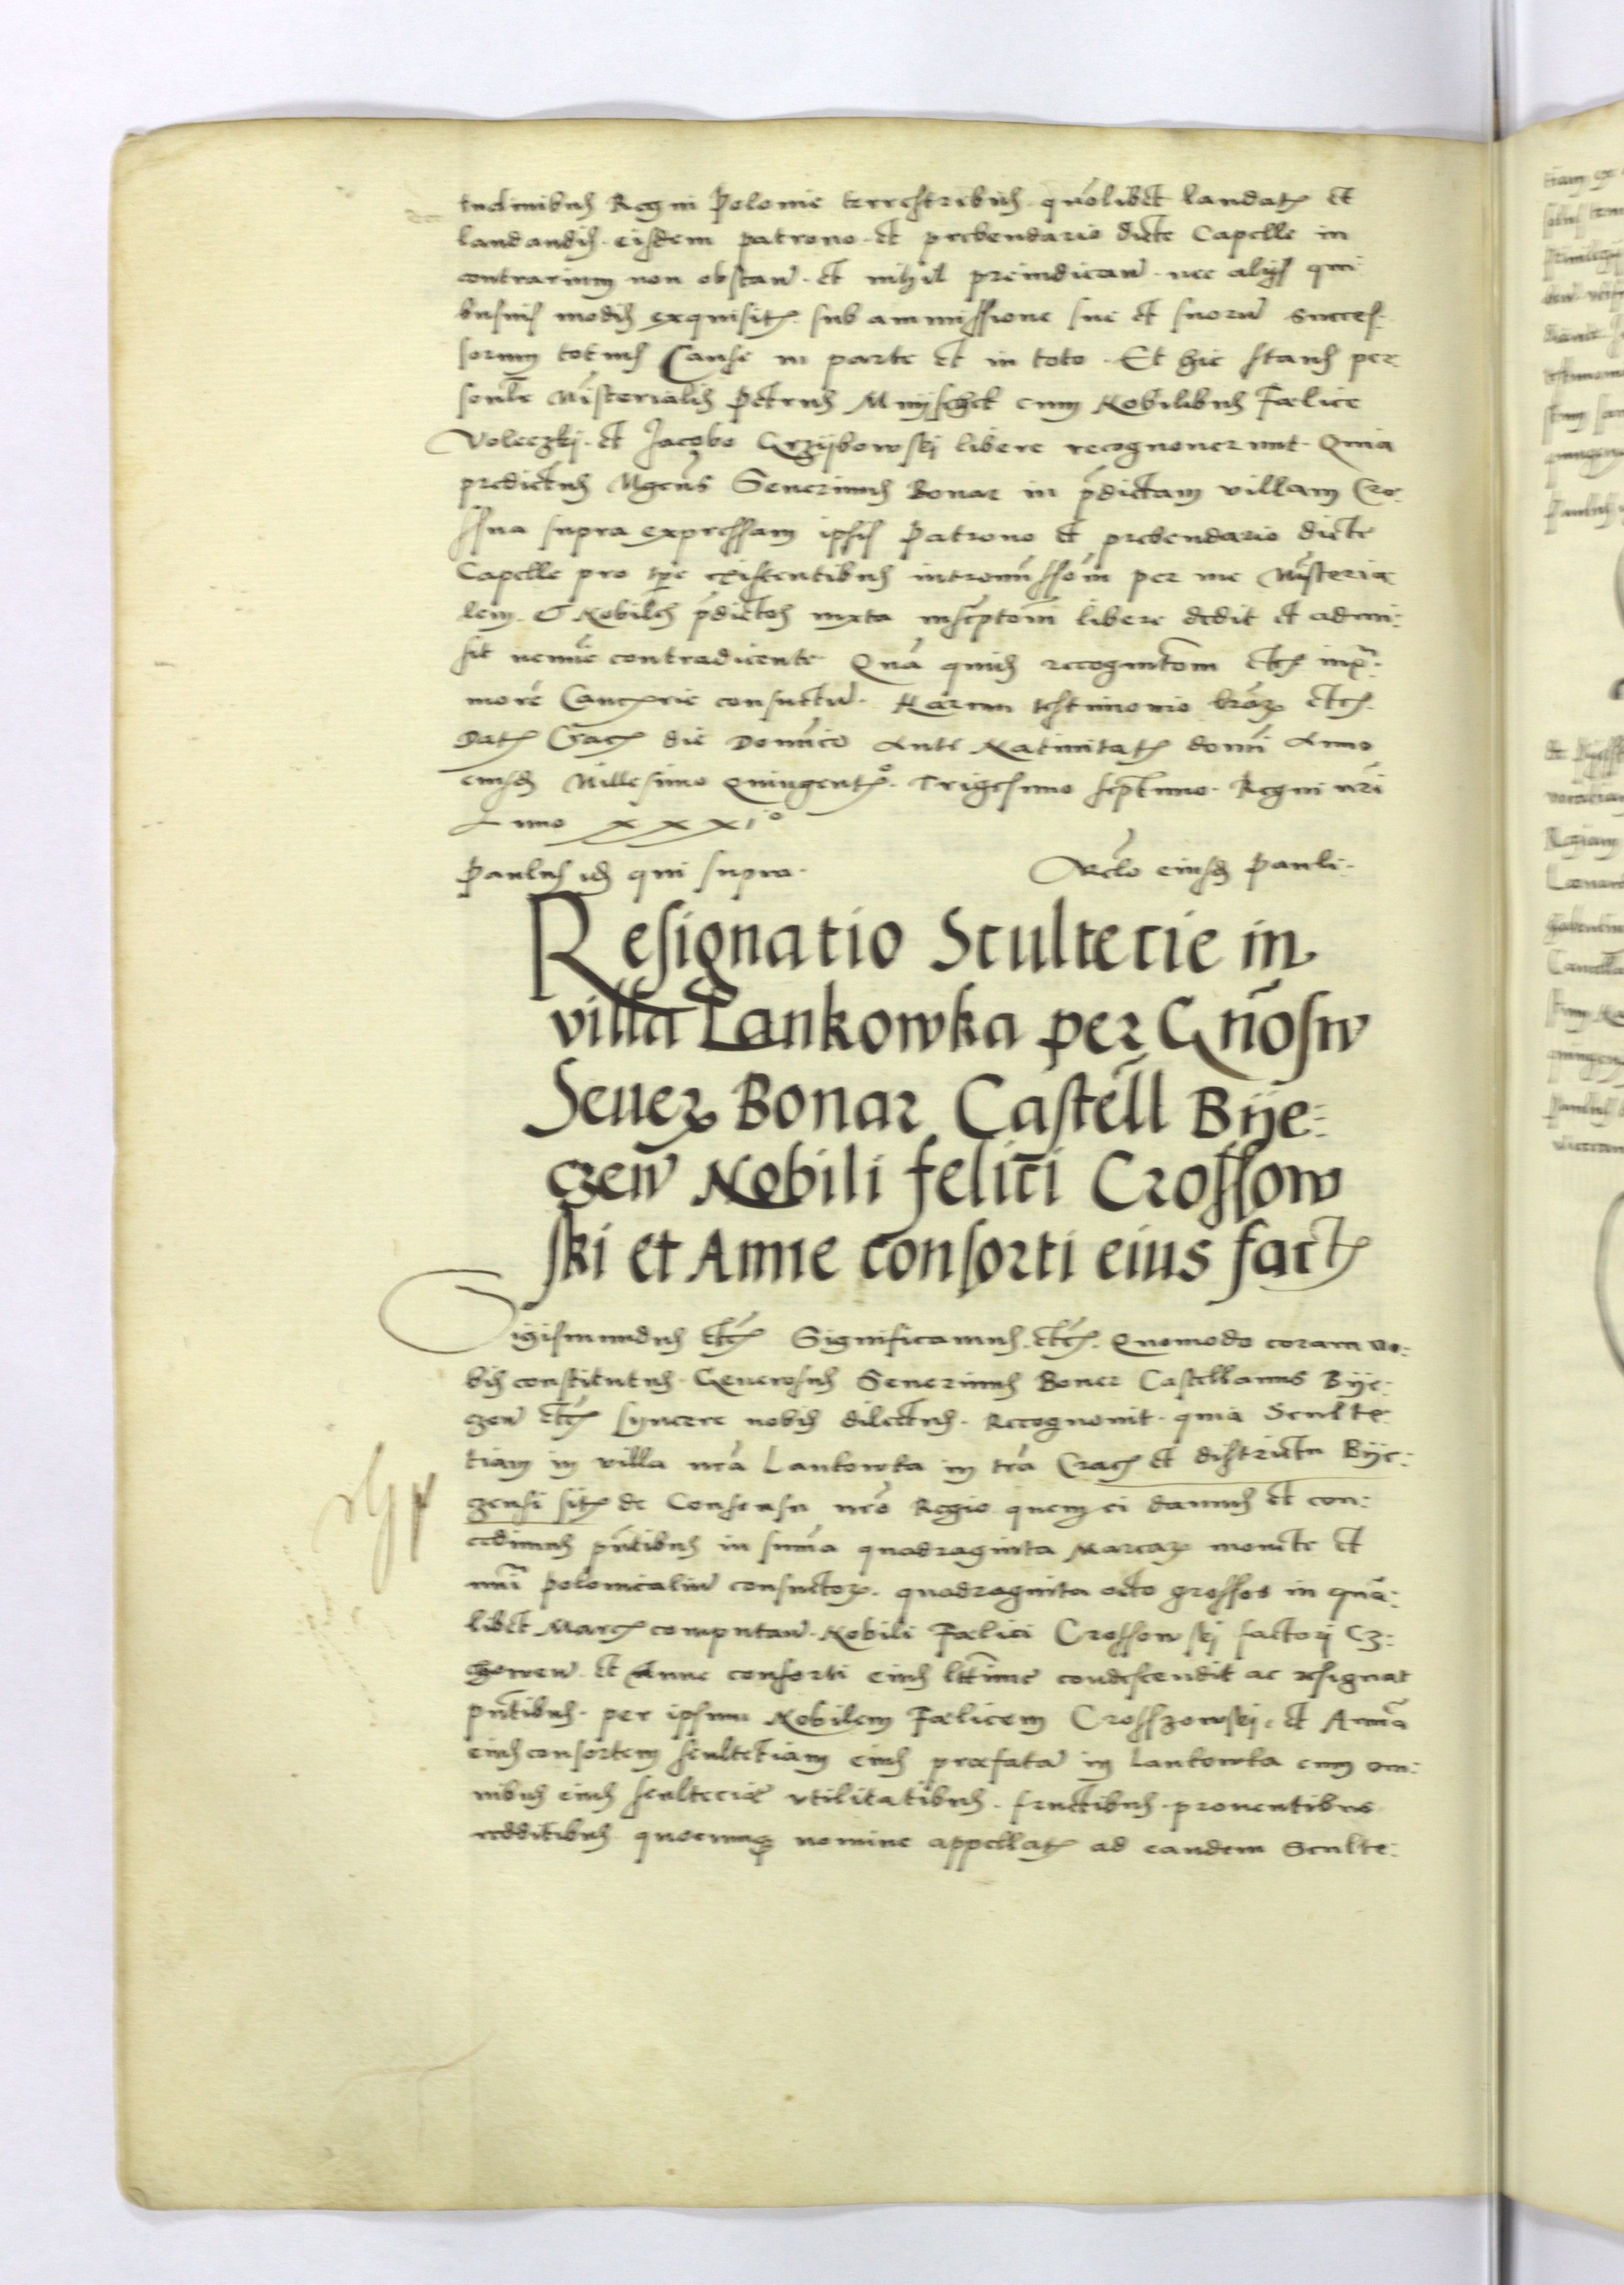 tudinibus Regni Polonie terrestribus quolibet laudat et
laudandis eisdem patrono et prebendario dicte Capelle in
contrarium non obstan et nihil preiudican nec alijs qui
busuis modis exquisit sub ammissione sue et suoru Succes:
sorum totius Cause in parte et in toto Et hic stans per
sonlr Misterialis Petrus Mnyschek cum Nobilibus Fælice
Voleczkj et Jacobo Grzÿbowskj libere recognouerunt Quia
predictus Mgcus Seuerinus Bonar in pdictam villam Cro:
ssna supra expressam ipsis Patrono et prebendario dicte
Capelle pro tpe existentibus intromissoem per me Misteria
lem et Nobiles pdictos iuxta inscptoem libere dedit et admi:
sit nemie contradicente Qua quid recognitom etc inpr:
more Cancrie consuetu Harum testimonio lrar etc
Dat Crac die Domico Ante Natiuitat domi Anno
eiusd Millesimo Quingent° Trigesimo septimo Regni nri
Anno xxxi°
Paulus id qui supra
Relo eiusd Pauli
Resignatio Scultecie in
villa Lankowka per Gnosu
Seuer Bonar Castell Bÿe:
czen Nobili felici Crossow
ski et Anne consorti eius fact
Sigismundus etc Significamus etc Quomodo coram no:
bis constitutus Generosus Seuerinus Boner Castellanus Bÿe:
czen etc syncere nobis dilectus Recognouit quia Sculte
tiam in villa nra Lankowka in tra Crac et districtu Bÿe:
czensi sit de Consensu nro Regio quem ei damus et con:
cedimus pntibus in suma quadraginta Marcar monete et
nui polonicaliu consuetor quadraginta octo grossos in qua:
libet Marc computan Nobili Fælici Crossowskj factorj Cz:
chowen et Anne consorti eius lttime condescendit ac resignat
pntibus per ipsum Nobilem Fælicem Crosszowskj et Anna
eius consortem scultetiam eius præfata in Lankowka cum om:
nibus eius scultecie vtilitatibus fructibus prouentibus
redditibus quocunq nomine appellat ad eandem Sculte: